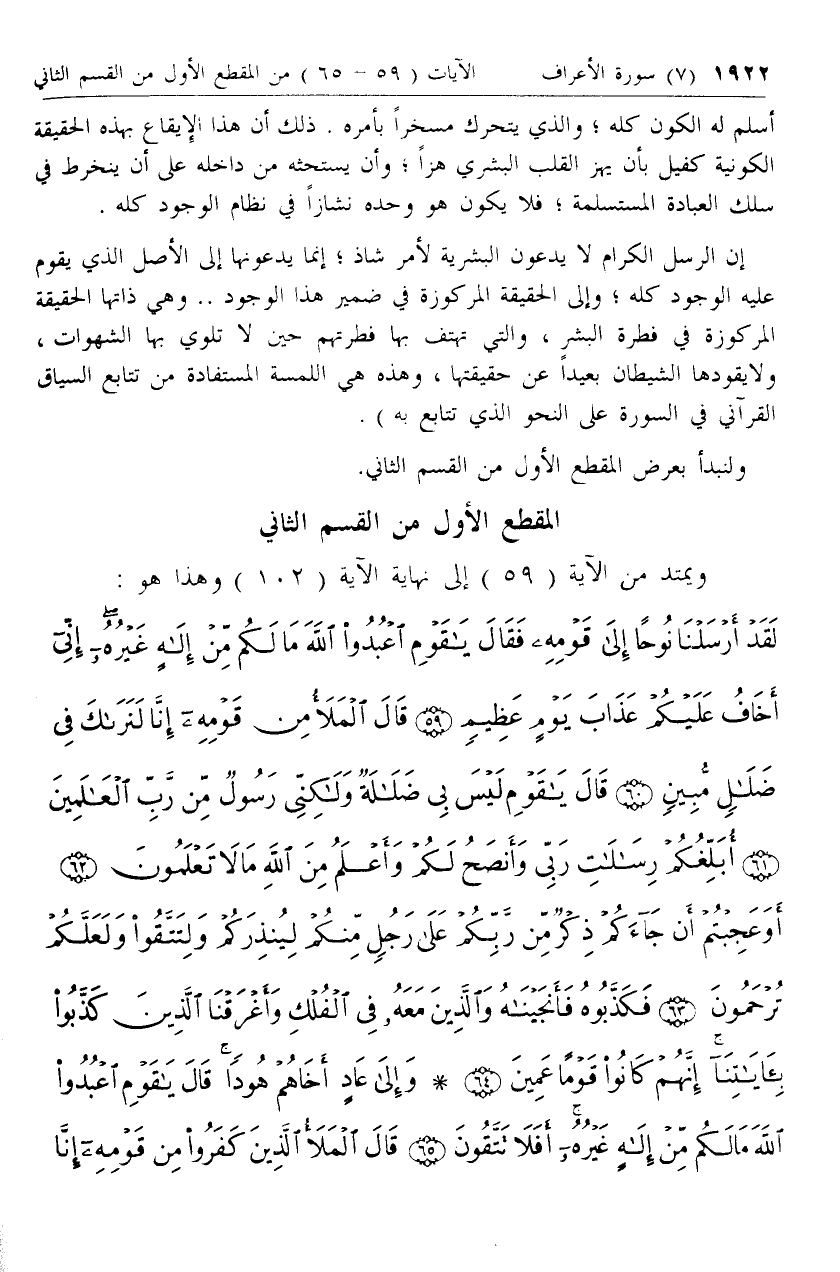 ١٩٢٢ (٧) سورة الأعراف الآيات ( ٥٩ - ٦٥ ) من المقطع الأول من القسم الثاني
أسلم له الكون كله ؛ والذي يتحرك مسخراً بأمره . ذلك أن هذا الإيقاع بهذه الحقيقة
الكونية كفيل بأن يهز القلب البشري هزاً ؛ وأن يستحثه من داخله على أن ينخرط في
سلك العبادة المستسلمة ؛ فلا يكون هو وحده نشازاً في نظام الوجود كله .
إن الرسل الكرام لا يدعون البشرية لأمر شاذ ؛ إنما يدعونها إلى الأصل الذي يقوم
عليه الوجود كله ؛ وإلى الحقيقة المركوزة في ضمير هذا الوجود .. وهي ذاتها الحقيقة
المركوزة في فطرة البشر ، والتي تهتف بها فطرتهم حين لا تلوي بها الشهوات ،
ولايقودها الشيطان بعيداً عن حقيقتها ، وهذه هي اللمسة المستفادة من تتابع السياق
القرآني في السورة على النحو الذي تتابع به ) .
ولنبدأ بعرض المقطع الأول من القسم الثاني.
المقطع الأول من القسم الثاني
ويمتد من الآية ( ٥٩ ) إلى نهاية الآية ( ١٠٢ ) وهذا هو :
لَقَدْ أَرْسَلْنَا نُوحًا إِلَىٰ قَوْمِهِۦ فَقَالَ يَـٰقَوْمِ ٱعْبُدُوا۟ ٱللَّهَ مَا لَكُم مِّنْ إِلَـٰهٍ غَيْرُهُۥٓ ۖ إِنِّىٓ
أَخَافُ عَلَيْكُمْ عَذَابَ يَوْمٍ عَظِيمٍ ﴿٥٩﴾ قَالَ ٱلْمَلَأُ مِن قَوْمِهِۦٓ إِنَّا لَنَرَىٰكَ فِى
ضَلَـٰلٍ مُّبِينٍ ﴿٦٠﴾ قَالَ يَـٰقَوْمِ لَيْسَ بِى ضَلَـٰلَةٌ وَلَـٰكِنِّى رَسُولٌ مِّن رَّبِّ ٱلْعَـٰلَمِينَ
﴿٦١﴾ أُبَلِّغُكُمْ رِسَـٰلَـٰتِ رَبِّى وَأَنصَحُ لَكُمْ وَأَعْلَمُ مِنَ ٱللَّهِ مَا لَا تَعْلَمُونَ ﴿٦٢﴾
أَوَعَجِبْتُمْ أَن جَآءَكُمْ ذِكْرٌ مِّن رَّبِّكُمْ عَلَىٰ رَجُلٍ مِّنكُمْ لِيُنذِرَكُمْ وَلِتَتَّقُوا۟ وَلَعَلَّكُمْ
تُرْحَمُونَ ﴿٦٣﴾ فَكَذَّبُوهُ فَأَنجَيْنَـٰهُ وَٱلَّذِينَ مَعَهُۥ فِى ٱلْفُلْكِ وَأَغْرَقْنَا ٱلَّذِينَ كَذَّبُوا۟
بِـَٔايَـٰتِنَآ ۚ إِنَّهُمْ كَانُوا۟ قَوْمًا عَمِينَ ﴿٦٤﴾ * وَإِلَىٰ عَادٍ أَخَاهُمْ هُودًا ۚ قَالَ يَـٰقَوْمِ ٱعْبُدُوا۟
ٱللَّهَ مَا لَكُم مِّنْ إِلَـٰهٍ غَيْرُهُۥٓ ۚ أَفَلَا تَتَّقُونَ ﴿٦٥﴾ قَالَ ٱلْمَلَأُ ٱلَّذِينَ كَفَرُوا۟ مِن قَوْمِهِۦٓ إِنَّا